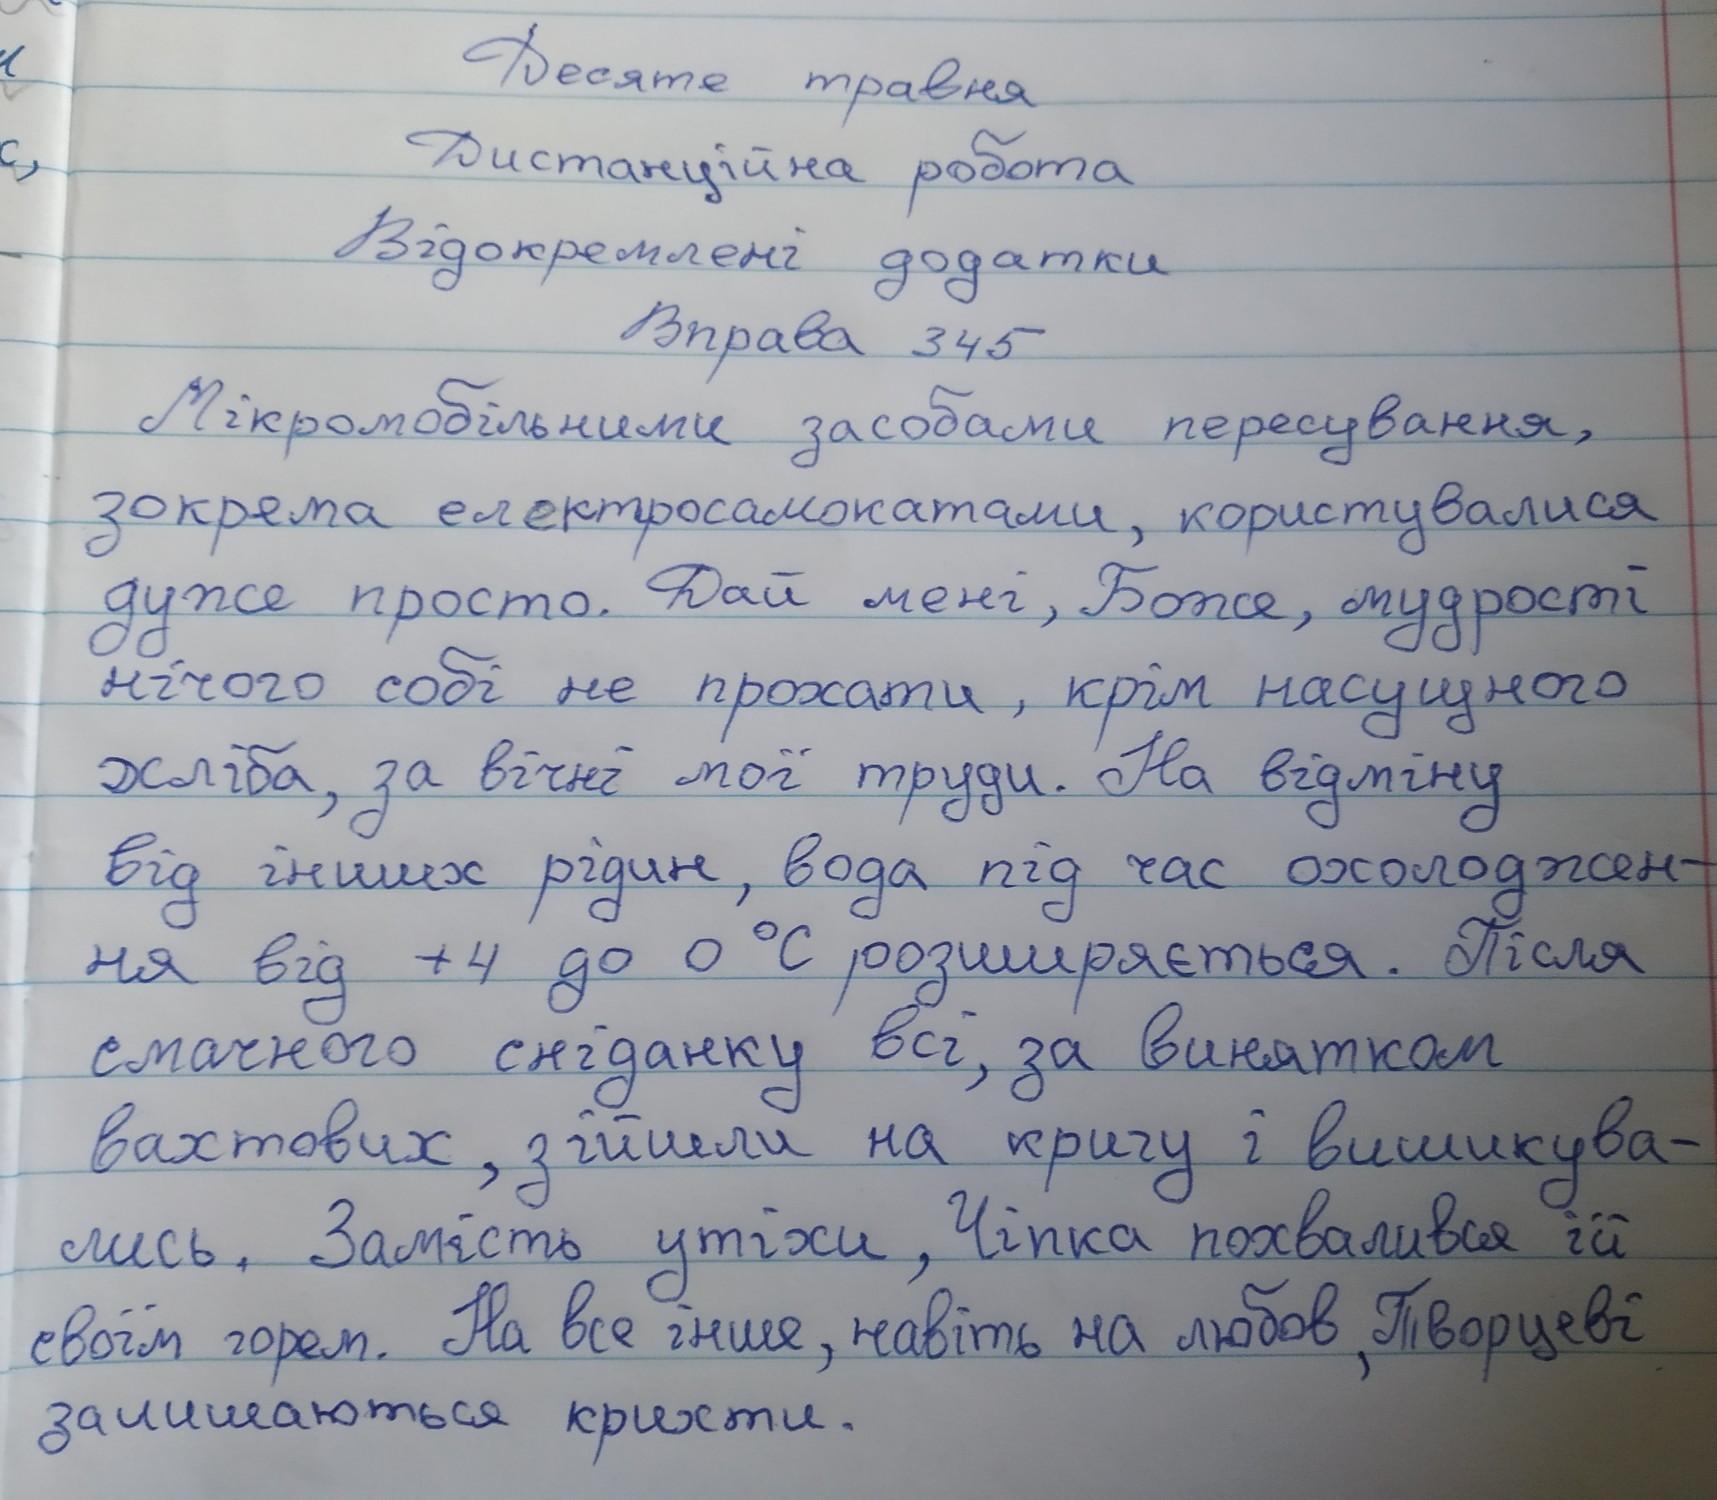 Десяте травня
Дистанційна робота
Відокремлені додатки
Вправа 345
Мікромобільними засобами пересування,
зокрема електросамокатами, користувалися
дуже просто. Дай мені, Боже, мудрості
нічого собі не прохати, крім насущного
хліба, за вічні мої труди. На відміну
від інших рідин, вода під час охолоджен-
ня від +4 до 0 °С розширяється. Після
смачного сніданку всі, за винятком
вахтових, зійшли на кригу і вишикува-
лись. Замість утіхи, Чіпка похвалився їй
своїм горем. На все інше, навіть на любов, Творцеві
залишаються крихти.